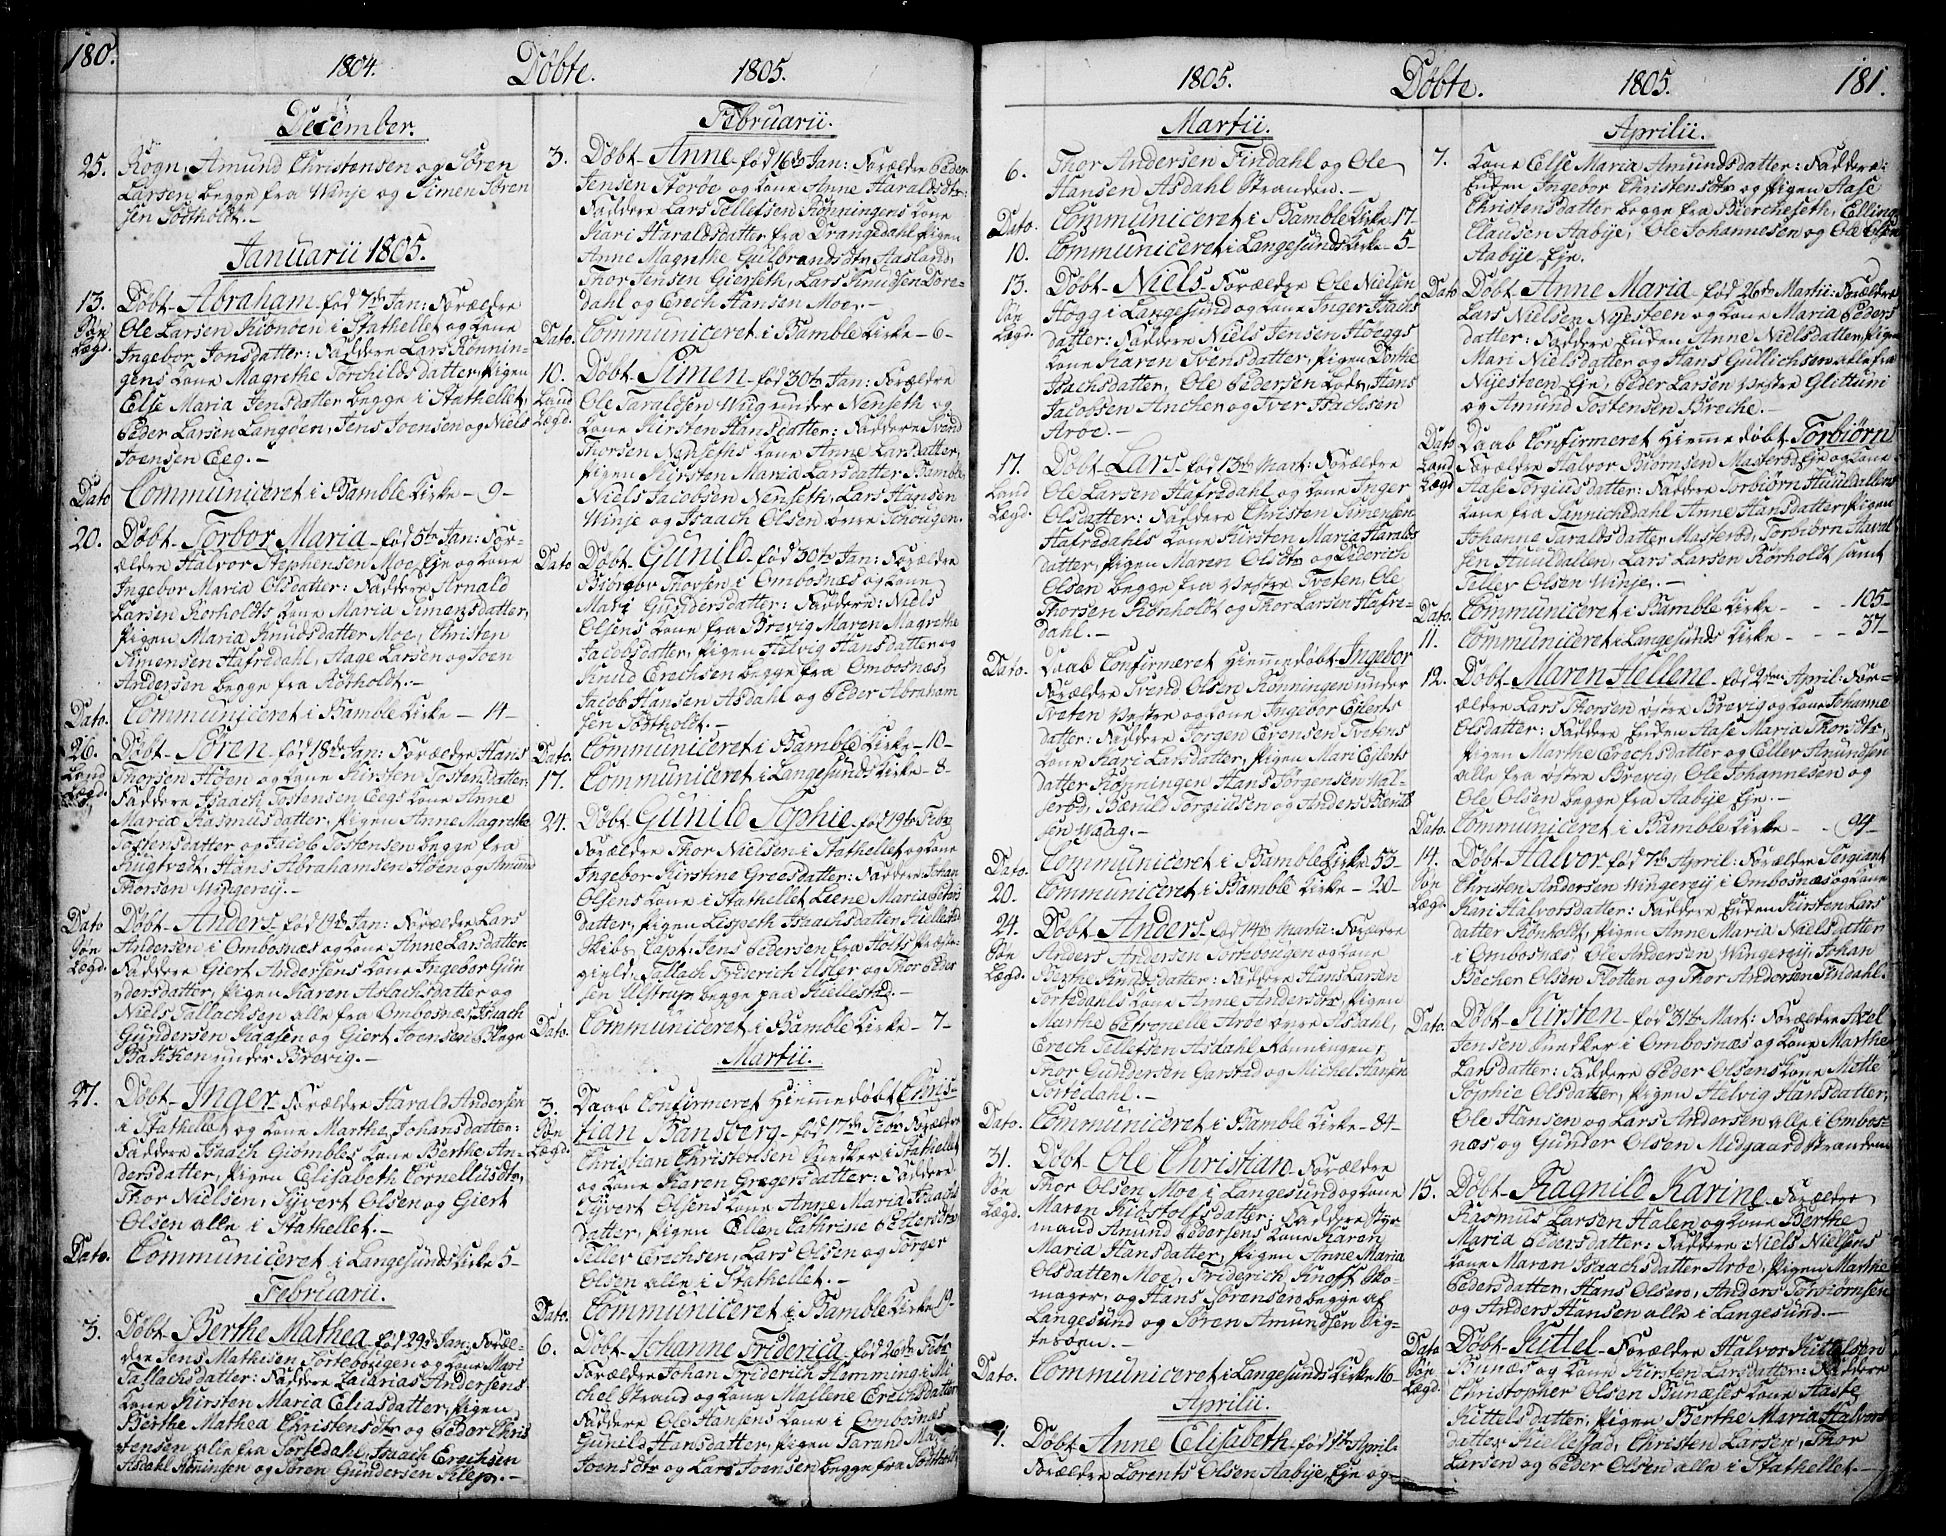 180.
1804.
Döbte.
1805.
December.
25. Kogn, Amund Christensen og Sören
Larsen begge fra Winje og Simen Sören
sen Södtholdt.-
Januarii 1805.
13. Döbt Abraham fød 7de Jan: Forældre
Søn Ole Larsen i Stathellet og Kone
Lægd. Ingebor Jonsdatter: Faddere Lars Rønnin-
gens Kone Magrethe Torchildsdatter, Pigen
Else Maria Jensdatter begge i Stathellet,
Peder Larsen Langøen, Jens Joensen og Niels
Joensen Eeg.-
Dato Communiceret i Bamble Kirke - 9-
20. Döbt Torbor Maria fød 5te Jan: For-
ældre Halvor Stephensen Moe Eje og Kone
Ingebor Maria Olsdatter: Faddere Arnald
Larsen Rorholdts Kone Maria Simensdatter,
Pigen Maria Knudsdatter Moe, Christen
Simensen Hafredahl, Aage Larsen og Joen
Andersen begge fra Rörholdt.-
Dato. Communiceret i Bamble Kirke - 14-
26. Döbt Sören fød 18de Jan: Forældre Hans
Land Thorsen Höen og Kone Kirsten Tostensdatter:
Lægd. Faddere Isaach Tostensen Eegs Kone Anne
Maria Rasmusdatter, Pigen Anne Magrethe
Tostensdatter og Jacob Tostensen begge fra
Hans Abrahamsen Höen og Amund
Thorsen Wingereij.-
Dato Döbt Anders fød 19de Jan: Forældre Lars
Søn Andersen i Ombosnæs og Kone Anne Larsdatter
Lægd. Faddere Giert Andersens Kone Ingebor Gun
dersdatter, Pigen Karen Aslachsdatter og
Niels Tallachsen alle fra Ombosnæs, Isaach
Gundersen Kaasen og Giert Joensen
Bakken under Brevig.-
27. Döbt Inger Forældre Harald Andersen
i Stathellet og Kone Marthe Johansdatter:
Faddere Isaach Giømbles Kone Berthe An-
dersdatter, Pigen Elisabeth Cornelliusdtr,
Thor Nielsen, Syvert Olsen og Giert
Olsen alle i Stathellet.-
Dato. Communiceret i Langesunds Kirke 5-
Februarii.
3. Döbt Berthe Mathea fød 29de Jan: Foræl-
dre Jens Mathisen Tortebougen og Kone Mari
Tallachsdatter: Faddere Zacarias Andersens
Kone Kirsten Maria Eliasdatter, Pigen
Berthe Mathea Christensdtr og Peder Chris
tensen alle fra Tortedahl, Isaach Erechsen
Asdahl Røningen og Søren Gundersen Klep.-
Februarii.
3. Döbt Anne fød 16de Jan: Forældre Peder
Jensen Storöe og Kone Anne Haraldsdtr:
Faddere Lars Tellefsen Rønningens Kone
Kari Haraldsdatter fra Drangedahl, Pigen
Anne Magrethe Gulbrandsdtr Aasland,
Thor Jensen Gierseth, Lars Knudsen Dore-
dahl og Erech Hansen Moe.-
Dato. Communiceret i Bamble Kirke - 6-
10. Döbt Simen fød 30te Jan: Forældre
Land Ole Taraldsen Wiig under Nenseth og
Lægd. Kone Kirsten Hansdatter: Faddere Svend
Thorsen Nenseths Kone Anne Larsdatter,
Pigen Kirsten Maria Larsdatter Bamble
Niels Jacobsen Nenseth, Lars Hansen
Winje og Isaach Olsen övre Schougen.
Dato Döbt Gunild fød 30te Jan: Forældre
Thorsen i Ombosnæs og Kone
Mari Gundersdatter: Faddere: Niels
Olsens Kone fra Brevig Maren Magrethe
Jacobsdatter, Pigen Helvig Hansdatter og
Knud Erechsen begge fra Ombosnæs,
Jacob Hansen Asdahl og Peder Abraham
sen Södtholdt.-
Dato. Communiceret i Bamble Kirke - 10-
17. Communiceret i Langesunds Kirke - 8-
24. Döbt Gunild Sophie fød 19de Febr
Forældre Thor Nielsen i Stathellet og Kone
Ingebor Kirstine Greesdatter: Faddere Johan
Olsens Kone i Stathellet Lene Maria Peders
datter, Pigen Lispeth Isaachsdatter Kiellestad
Skibs Capt: Jens Pedersen fra Holts Præste-
gield, Tallach Friderich Usler og Thor Peder
sen Ulstrup begge paa Kiellestad.-
Dato. Communiceret i Bamble Kirke - 7-
Martii.
3. Daab Confirmeret Hiemmedöbt Chris-
Søn tian Bansberg - fød 17de Febr Forældre
Lægd. Christian Christensen Snedker i Stathellet
og Kone Karen Gregersdatter: Faddere
Syvert Olsens Kone Anne Maria Isaachs
datter, Pigen Ellen Cathrine Pedersdtr
Tellev Erechsen, Lars Olsen og Jørger
Olsen alle i Stathellet.-
Dato. Communiceret i Bamble Kirke 19-
6. Döbt Johanne Friderica fød 26de Febr
Forældre Johan Friderich Hemming i Mi
chel Strand og Kone Mallene Erechsdatter
Faddere Ole Hansens Kone i Ombosnæs
Gunild Hansdatter, Pigen Tarand Ma
Joensdtr og Lars Joensen begge fra Södtholdt
1805.
Döbte.
1805.
181.
Martii.
6. Thor Andersen Findahl og Ole
Hansen Asdahl Stranden.-
Dato. Communiceret i Bamble Kirke - 17-
10. Communiceret i Langesunds Kirke - 5-
13. Döbt Niels Forældre Ole Nielsen
Søn Høgg i Langesund og Kone Inger Isachs
Lægd. datter: Faddere Niels Jensen Höeggs
Kone Karen Svensdatter, Pigen Dorthe
Isachsdatter, Ole Pedersen Lods, Hans
Jacobsen Ancher og Iver Isachsen
Aröe.-
17. Döbt Lars fød 13de Mart: Forældre
Land Ole Larsen Hafredahl og Kone Inger
Lægd. Olsdatter: Faddere Christen Simensen
Hafredahls Kone Kirsten Maria Haralds
datter, Pigen Maren Olsdtr og Diderich
Olsen begge fra Vestre Tveten, Ole
Thorsen Rönholdt og Thor Larsen Hafre-
dahl.-
Dato. Daab Confirmeret Hiemmedöbt Ingebor
Forældre Svend Olsen Rønningen under
Tveten Vestre og Kone Ingebor Eilerts
datter: Faddere Jørgen Evensen Tvetens
Kone Kari Larsdatter, Pigen Mari Eilerts
datter Rønningen, Hans Jørgensen Val-
leröd, Bæruld Torgiusen og Anders Bents
sen Waag.-
Dato. Communiceret i Bamble Kirke - 53-
20. Communiceret i Bamble Kirke - 20-
24. Döbt Anders fød 14de Martii: Forældre
Søn Anders Andersen Tortebougen og Kone
Lægd. Berthe Amundsdatter: Faddere Hans Larsen
Tortedahls Kone Anne Andersdtr, Pigen
Marthe Petronelle Aröe övre Asdahl,
Erech Tellefsen Asdahl Rønningen,
Thor Gundersen Garstad og Michel Hansen
Tortedahl.-
Dato. Communiceret i Bamble Kirke - 84-
31. Döbt Ole Christian Forældre
Søn Thor Olsen Moe i Langesund og Kone
Lægd. Maren Kistolfsdatter: Faddere Styr
mand Amund Pedersens Kone Karen
Maria Hansdatter, Pigen Anne Maria
Olsdatter Moe, Friderich Knoff Sko-
mager, og Hans Sørensen begge af
Langesund og Søren Amundsen Sig-
tesøen.-
Dato. Communiceret i Langesunds Kirke 16-
Aprilii.
7. Döbt Anne Elisabeth fød 1st April
Forældre Lorents Olsen Aabije Eje og-
Aprilii.
7. Kone Else Maria Amundsdatter: Faddere:
Enken Ingebor Christensdtr og Pigen Aase
Christensdatter begge fra Biercheseth, Elling
Clausen Aabije, Ole Johannesen og Ole Olsen
Aabije Eje.
Dato Döbt Anne Maria fød 26de Martii: Forældre
Lars Nielsen Nijesteen og Kone Maria Peders
datter: Faddere Enken Anne Nielsdatter, Pigen
Mari Nielsdatter og Hans Gullichsen alle fra
Nijesteen Eje, Peder Larsen Vestre Glittum
og Amund Tostensen Breche.-
Dato Daab Confirmeret Hiemmedöbt Torbiørn
Land Forældre Halvor Biörnsen Masteröd Eje og Kone
Lægd Aase Torgiusdatter: Faddere Torbiørn Haugdallens
Kone fra Sannichedahl Anne Hansdatter, Pigen
Johanne Taraldsdatter Masteröd, Torbiørn Haval
sen Hauldallen, Lars Larsen Rorholdt samt
Tellev Olsen Winje.-
Dato. Communiceret i Bamble Kirke - - - 105-
11. Communiceret i Langesunds Kirke - - - 37-
12. Döbt Maren Hellene fød 2den April: For-
ældre Lars Thorsen östre Brevig og Kone Johanne
Olsdatter: Faddere Enken Aase Maria Thorsdtr,
Pigen Marthe Erechsdatter og Ellev Amundsen
alle fra østre Brevig, Ole Johannesen og
Ole Olsen begge fra Aabije Eje.-
Dato. Communiceret i Bamble Kirke - - 94-
14. Döbt Halvor fød 7de April: Forældre Sergiant
Søn Christen Andersen Wingereij i Ombosnæs og Kone
Lægd. Kari Halvorsdatter: Faddere Enken Kirsten Lars
datter Rönholdt, Pigen Anne Maria Nielsdatter
i Ombosnæs, Ole Andersen Wingereij, Johan
Becher Olsen Flotten og Thor Andersen Findahl.
Dato. Döbt Kirsten fød 31te Mart: Forældre Axel
Jensen Snedker i Ombosnæs og Kone Marthe
Larsdatter: Faddere Peder Olsens Kone Mette
Sophie Olsdatter, Pigen Helvig Hansdatter,
Ole Hansen og Lars Andersen alle i Ombos-
næs og Gunder Olsen Midgaardstranden
15. Döbt Ragnild Karine Forældre
Rasmus Larsen Halen og Kone Berthe
Maria Pedersdatter: Faddere Niels Nielsens
Kone Maren Isaachsdatter Aröe, Pigen Marthe
Pedersdatter, Hans Olsen, Anders Torbiörnsen
og Anders Hansen alle i Langesund.-
Dato Döbt Kittel Forældre Halvor Kittelsen
Søn Bunæs og Kone Kirsten Larsdatter: Faddere
Lægd. Christopher Olsen Bunæses Kone Aaste
Kittelsdatter, Pigen Berthe Maria Halvors
datter Kiellestad, Christen Larsen, Thor
Larsen og Peder Olsen alle i Stathellet.-